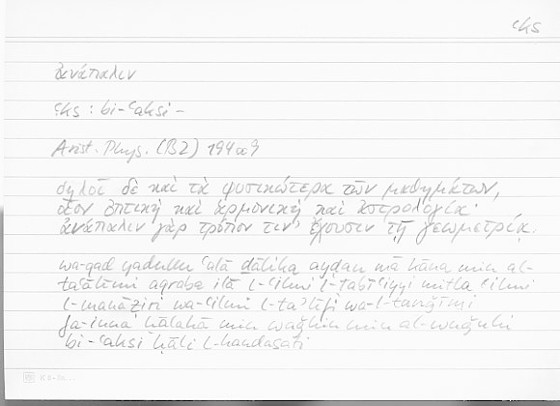 ʿks
ἀνάπαλιν
ʿks : bi-ʿaksi-
Arist. Phys. (B2) 194a9
δηλοῖ δὲ καὶ τὰ φυσικώτερα τῶν μαθημάτων,
οἷον ὀπτικὴ καὶ ἁρμονικὴ καὶ ἀστρολογία·
ἀνάπαλιν γὰρ τρόπον τιν' ἔχουσιν τῇ γεωμετρίᾳ.
wa-qad yadullu ʿalā ḏālika ayḍan mā kāna min al-
taʿālīmi aqraba ilā l-ʿilmi l-ṭabīʿiyyi miṯla ʿilmi
l-manāẓiri wa-ʿilmi l-taʾlīfi wa-l-tanǧīmi
fa-inna ḥālahā min waǧhin min al-wuǧūhi
bi-ʿaksi ḥāli l-handasati